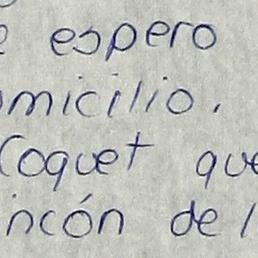 e espero
omicilio.
Coquet que
incón del